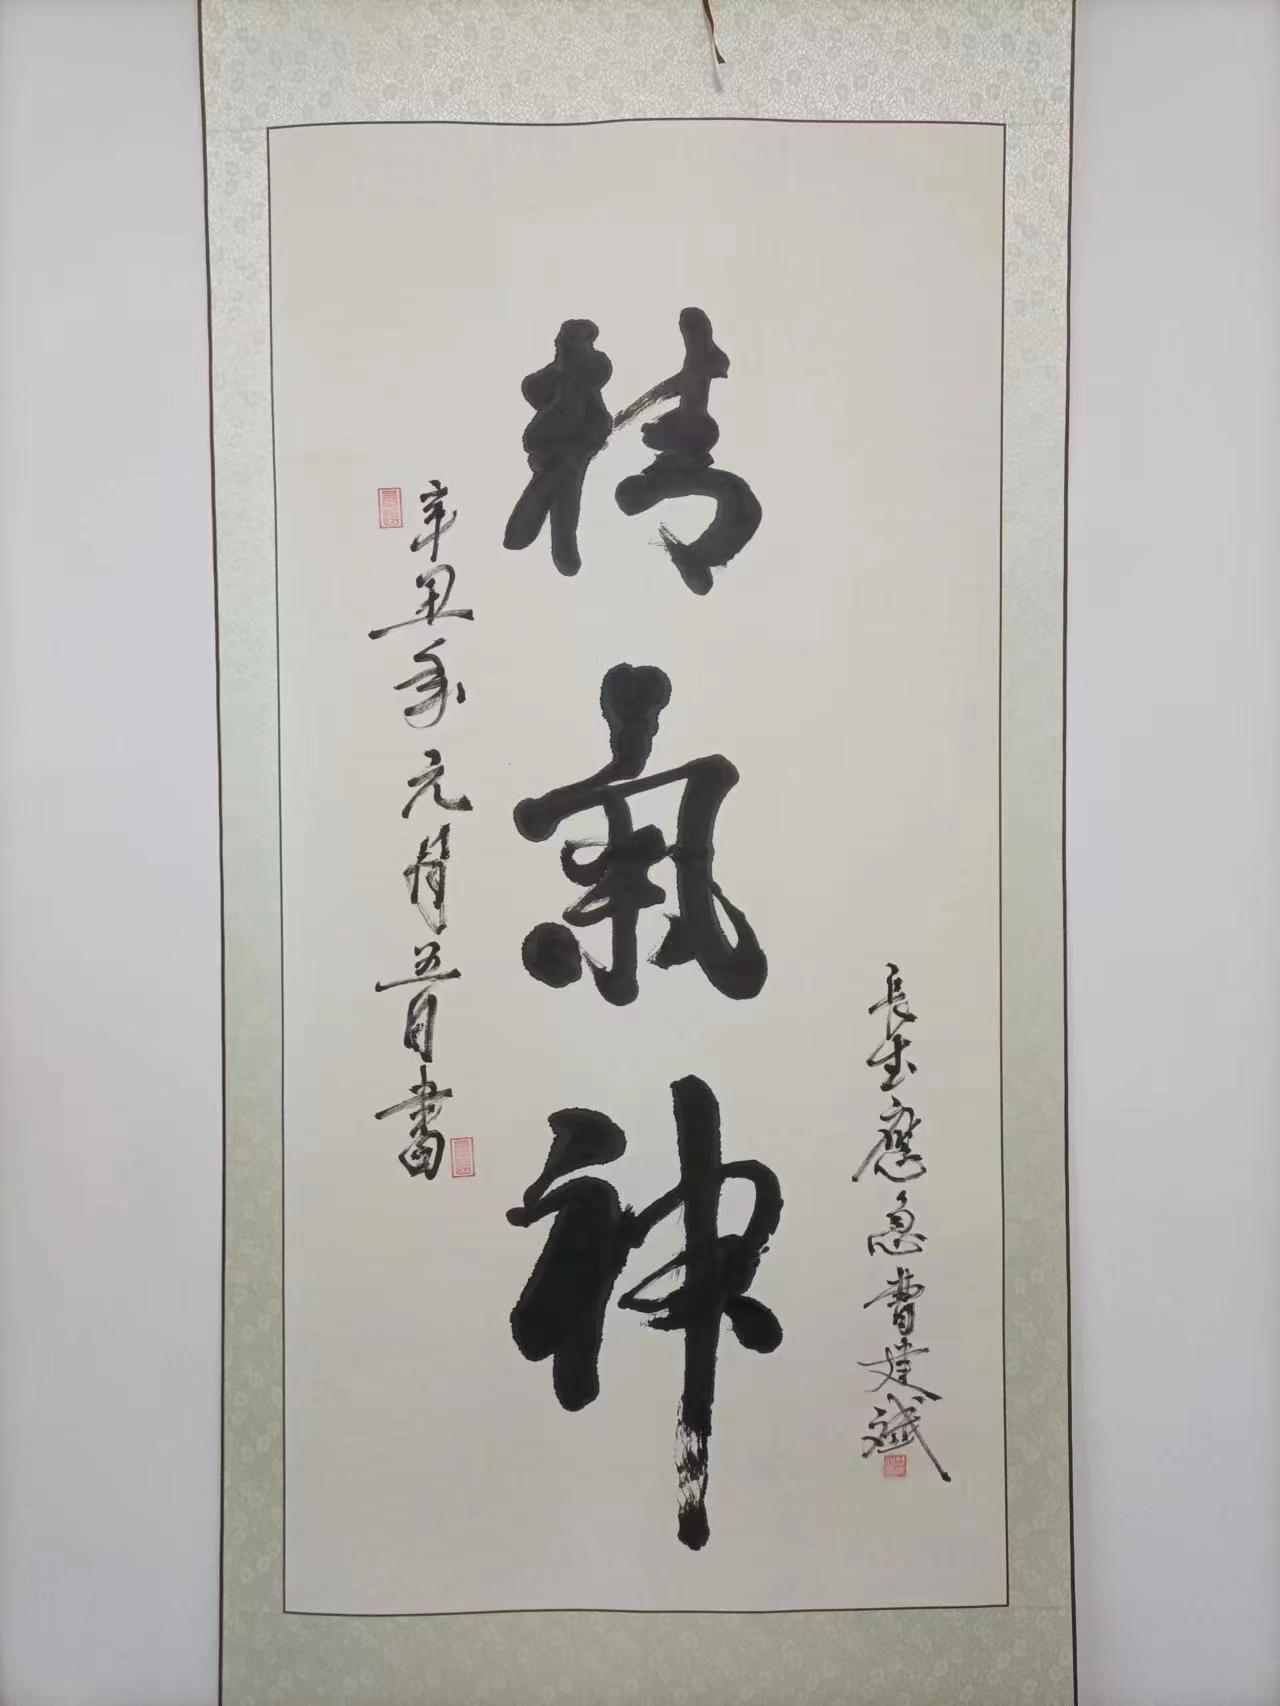 精氣神
長生應急曹建斌
辛丑年元月五日書